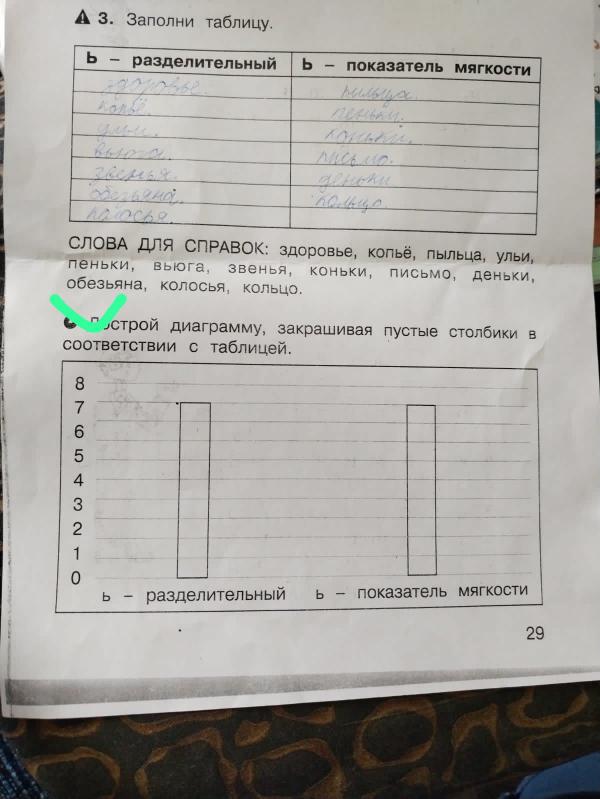 3. Заполни таблицу.
Ь – разделительный Ь – показатель мягкости
здоровье. пыльца.
копьё. пеньки.
ульи. коньки.
вьюга. письмо.
звенья. деньки
обезьяна. кольцо
колосья.
СЛОВА ДЛЯ СПРАВОК: здоровье, копьё, пыльца, ульи,
пеньки, вьюга, звенья, коньки, письмо, деньки,
обезьяна, колосья, кольцо.
Построй диаграмму, закрашивая пустые столбики в
соответствии с таблицей.
8
7
6
5
4
3
2
1
0
ь – разделительный ь – показатель мягкости
29